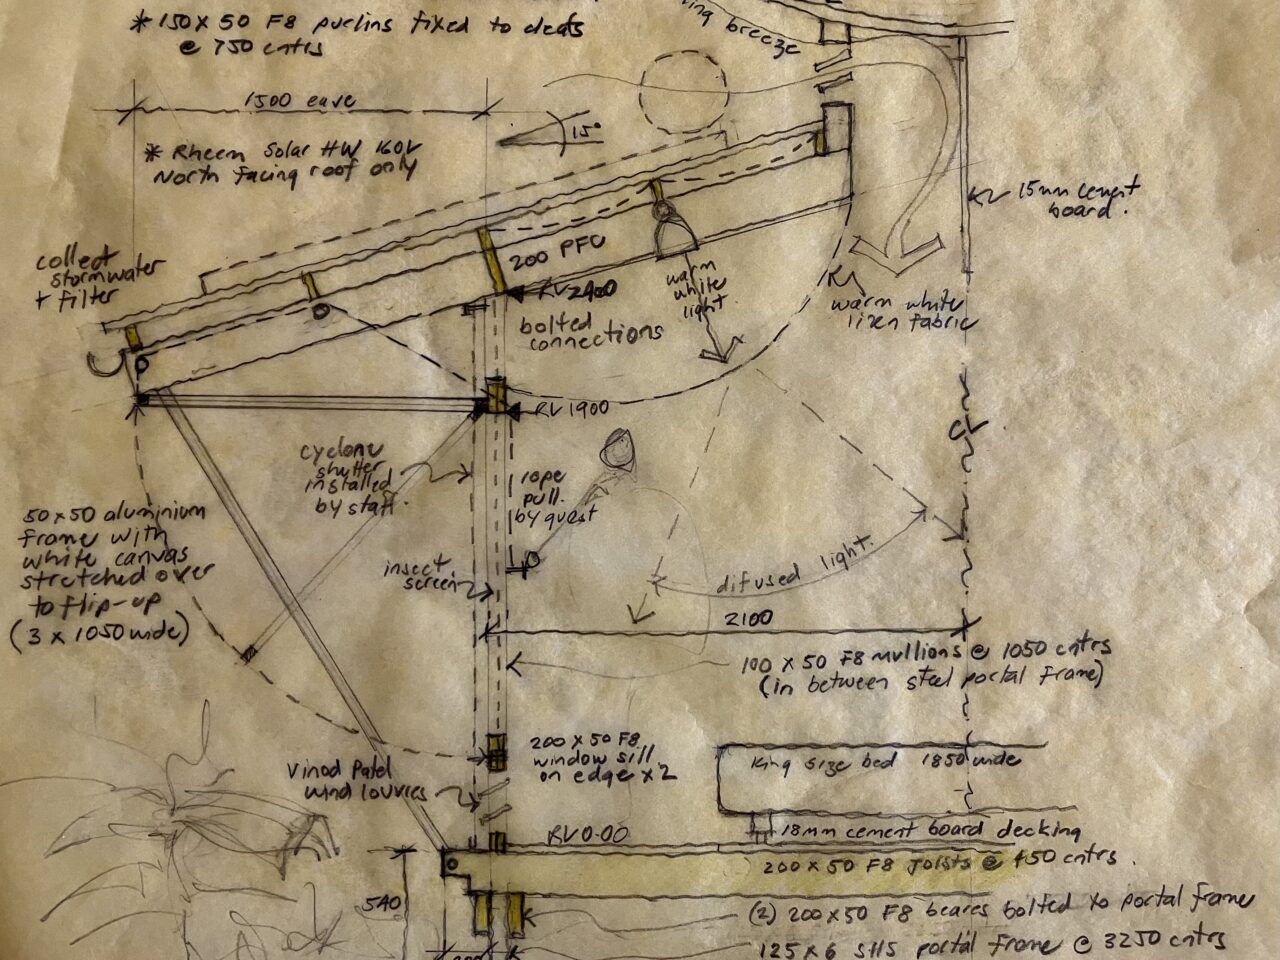 * 150 x 50 F8 purlins fixed to cleats
@ 750 cntrs
breeze
1500 eave
15°
* Rheem Solar HW 160V
North facing roof only
15mm cement
board.
collect
stormwater
+ filter
200 PFC
RV2400
bolted
connections
warm
white
light
warm white
linen fabric
RV1900
cyclone
shutter
installed
by staff.
rope
pull.
by guest
50x50 aluminium
frame with
white canvas
stretched over
to flip-up
(3 x 1050 wide)
insect
screen
difused light.
2100
100 x 50 F8 mullions @ 1050 cntrs
(in between steel portal frame)
200 x 50 F8
window sill
on edge x 2
King size bed 1850 wide
Vinod Patel
wind louvres
RV0.00
18mm cement board decking
200 x 50 F8 joists @ 450 cntrs.
540
(2) 200x50 F8 beares bolted to portal frame
125 x 6 SHS portal frame @ 3250 cntrs